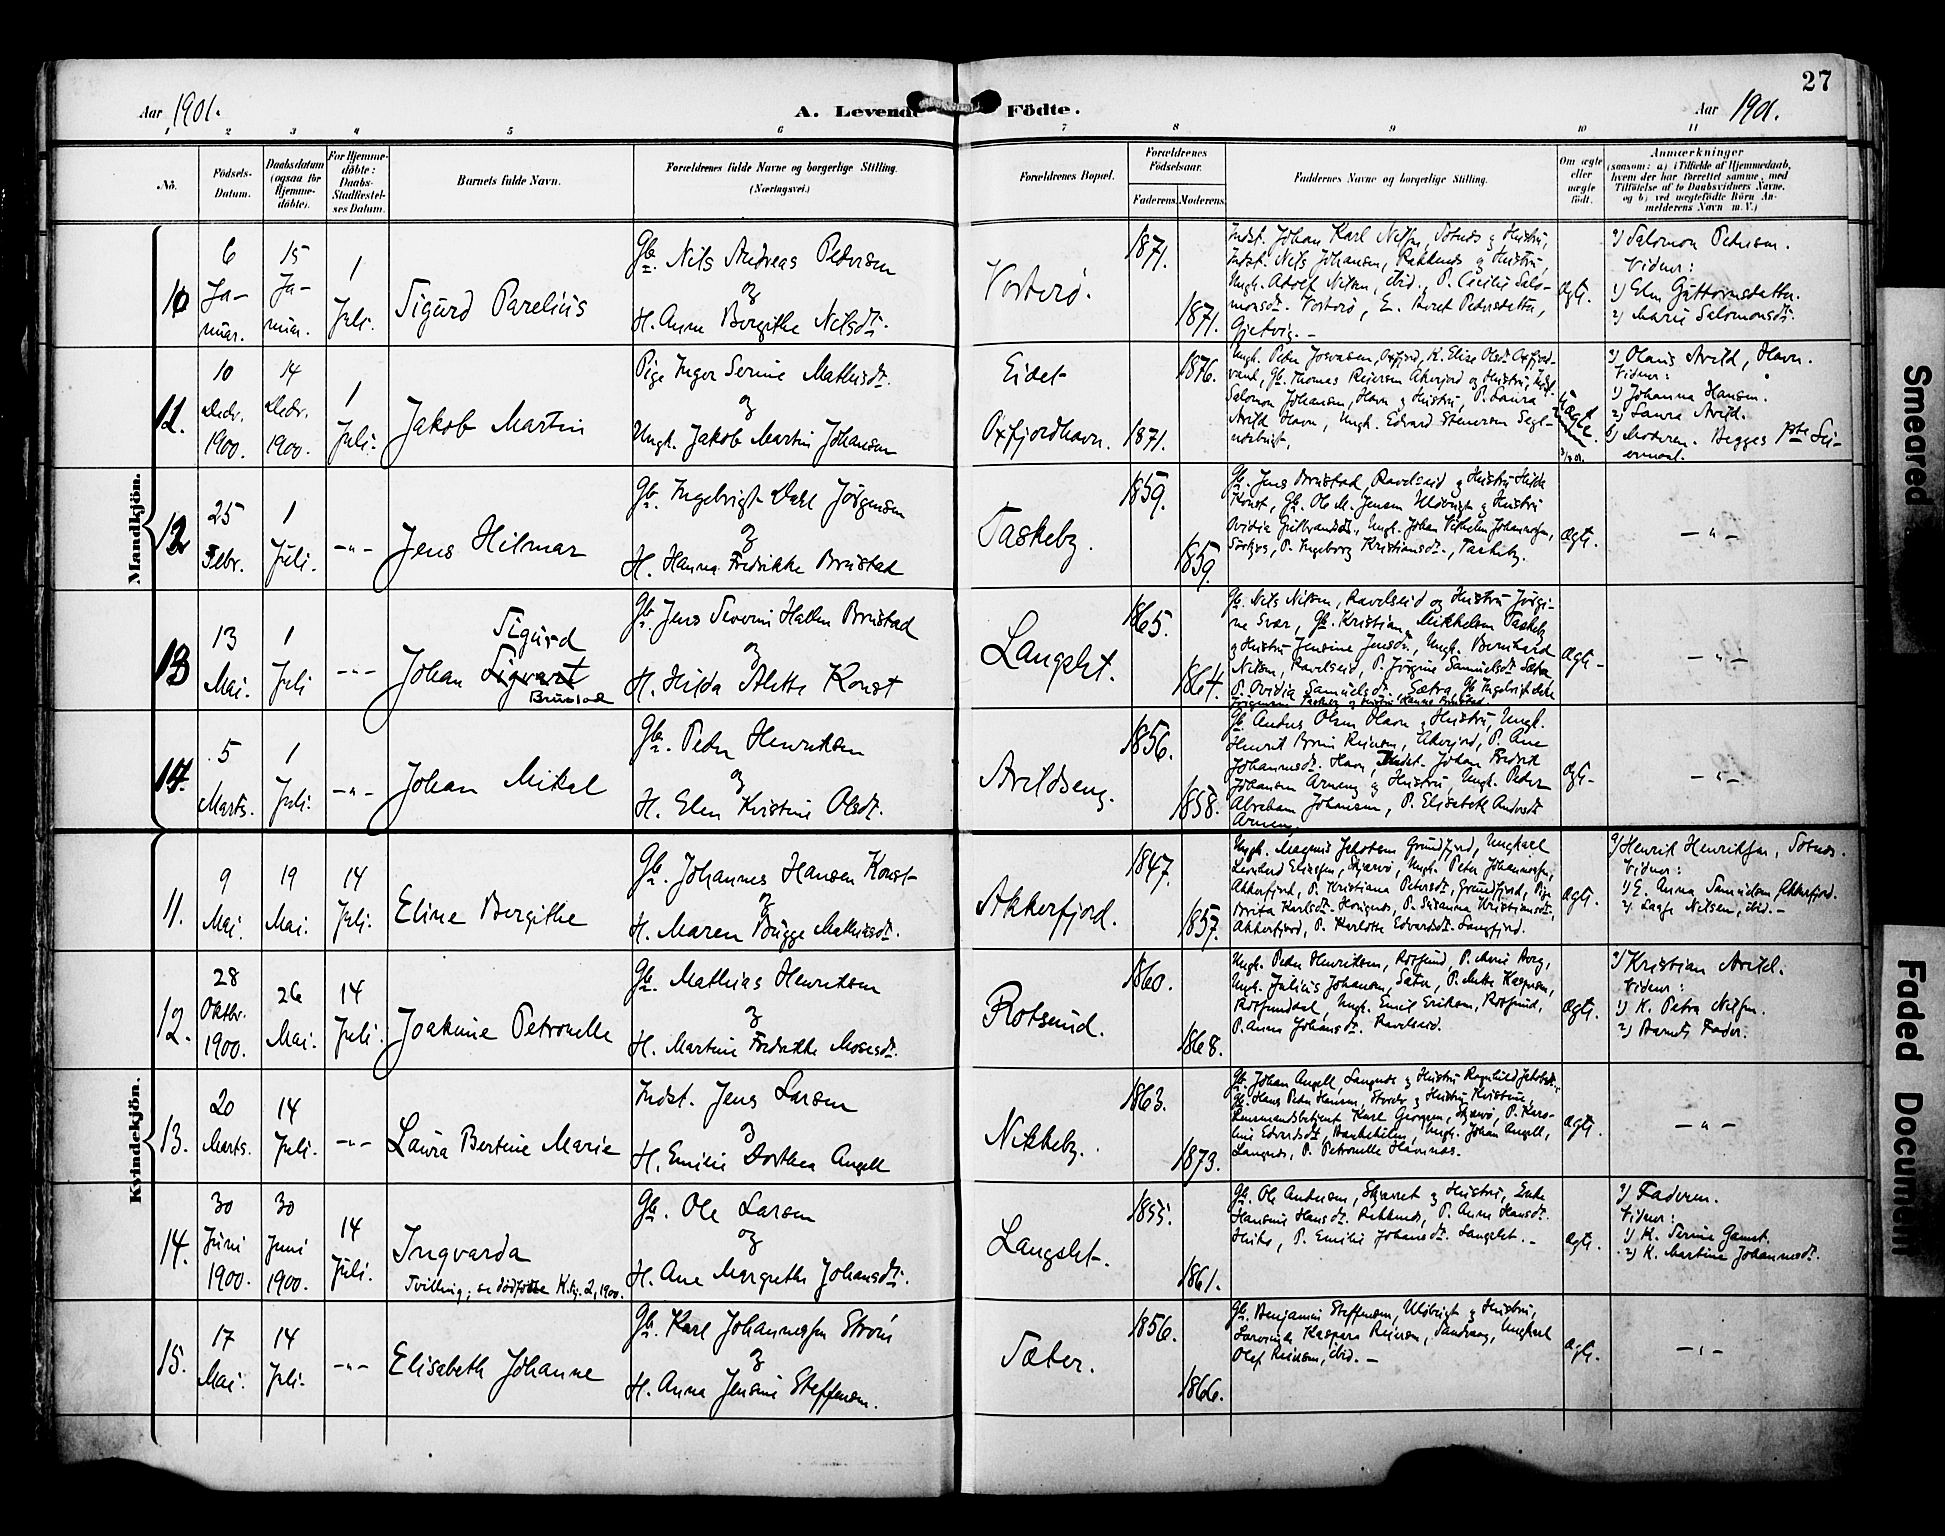 27
Aar 1901.
A. Levende Födte.
Aar 1901.
1 2 3 4 5 6 7 8 9 10 11
No.
Födsels-
Datum.
Daabsdatum
(ogsaa for
Hjemme-
döbte).
For Hjemme-
döbte:
Daabs-
Stadfæstel-
ses Datum.
Barnets fulde Navn.
Forældrenes fulde Navne og borgerlige Stilling.
(Næringsvei.)
Forældrenes Bopæl.
Forældrenes
Födselsaar.
Faderens. Moderens.
Faddernes Navne og borgerlige Stilling.
Om ægte
eller
uægte
födt.
Anmærkninger
(saasom: a) i Tilfælde af Hjemmedaab,
hvem der har forrettet samme, med
Tilföielse af to Daabsvidners Navne,
og b) ved uægtefödte Börn An-
melderens Navn m. V.)
Mandkjön.
10
6
Ja-
nuar.
15
Ja-
nuar.
1
Juli.
Sigurd Parelius
Gb. Nils Andreas Pedersen
og
H. Anna Bergithe Nilsdt.
Vorterö.
1871.
1871.
Indst. Johan Karl Nilsen, Hustru,
Indst. Nils Johansen, Rakkenes og Hustru,
Ungk. Adolf Nilsen, ibid., P. Cecilie Salo-
monsdt. Vorterö, E. Beret Pedersdatter,
Gjetvig. -
ægte.
a) Salomon Pedersen.
Vidner:
1) Elen Guttormsdatter.
2) Marie Salomonsdt.
11.
10
Decbr.
1900.
14
Decbr.
1900.
1
Juli.
Jakob Martin
Pige Inger Serine Mathisdt.
og
Ungk. Jakob Martin Johansen
Eidet
Oxfjordhavn.
1876.
1871.
Ungk. Peder Josvasen, Oxfjord, K. Elise Olsdt. Oxfjord-
vand, Gb. Thomas Reiersen Akerjord og Hustru, Indst.
Salomon Johansen, Havn og Hustru, P. Laura
Arild Havn, Ungk. Edvard Stenersen Segl-
uægte.
a) Olaus Arild, Havn.
Vidner:
1) Johanna Hansen.
2) Laura Arild.
b) Moderen. Begges 1ste Lei-
ermaal.
12
25
Febr.
1
Juli.
-"-
Jens Hilmar
Gb. Ingebrigt Dahl Jörgensen
og
H. Hanna Fredrikke Brustad
Taskeby.
1859.
1859.
Gb. Jens Brustad, Ravelseid og Hustru Hilda
Konst, Gb. Ole M. Jensen Ulöbugt og Hustru
Ovidia Gulbransdt., Ungk. Johan Vilhelm Johannesen,
P. Ingeborg Kristiansdt., Taskeby.
ægte.
-"-
13
13
Mai.
1
Juli
-"-
Sigurd
Johan Sigvart
Brustad
Gb. Jens Severin Hallen Brustad
og
H. Hilda Alette Konst
Langslet.
1865.
1864.
Gb. Nils Nilsen, Ravelseid og Hustru Jörgi-
ne Svær, Gb. Kristian Mikkelsen Taskeby
og Hustru Jensine Jensdt., Ungk. Bernhard
Nilsen, Ravelseid, P. Jörgine Samuelsdt. Sætra
P. Ovidia Samuelsdt., Sætra, Gb. Ingebrigt Dahl
Jörgensen Taskeby og Hustru Hanna Brustad.
ægte
-"-
14.
5
Marts.
1
Juli.
-"-
Johan Mikal
Gb. Peder Henriksen
og
H. Elen Kristine Olsdt.
Arildseng.
1856.
1858.
Gb. Anders Olsen Havn og Hustru, Ungk.
Henrik Reiersen, Akerjord, P. Ane
Johannesdt. Havn, Indst. Johan Fredrik
Johansen Arneng og Hustru, Ungk. Peder
Abraham Johansen, P. Elisabeth Andersdt.
Arneng.
ægte
-"-
Kvindekjön.
11.
9
Mai.
19
Mai.
14
Juli.
Eline Bergithe
Gb. Johannes Hansen Konst
og
H. Maren Bugge Mathisdt.
Akkerfjord.
1847.
1857.
Ungk. Magnus Jakobsen Grundfjord, Ungkarl
Leonhard Eliassen, Skjærvö, Ungk. Peter Johannesen,
Akkerfjord, P. Kristiana Petersdt., Grundfjord, Pige
Berita Karlsdt. P. Susanna Kristiansdt.,
Akkerfjord, P. Karlotte Edvardsdt. Langfjord.
ægte.
a) Henrik Henriksen,
Vidner:
1) E. Anna Samuelsen, Akkerfjord.
2) Nilsen, ibid. -
12.
28
Oktbr.
1900.
26
Mai.
14
Juli.
Joakine Petronelle
Gb. Mathias Henriksen
og
H. Martine Fredrikke Mosesdt.
Rotsund.
1860.
1868.
Ungk. Peder Henriksen, Rotsund, P. Berg,
Ungk. Julius Johansen, Sæter, P. Kaspersen,
Rotsunddal, Ungk. Emil Eriksen, Rotsund,
P. Anna Johansdt. Ravelseid.
ægte.
a) Kristian Arild.
Vidner:
1) K. Petra Nilsen.
2) Barnets Fader.
13.
20
Marts.
14
Juli.
-"-
Laura Bertine Marie
Indst. Jens Larsen
og
H. Emilie Dorthea Angell
Nikkeby.
1863.
1873.
Gb. Johan Angell, Langnes og Hustru Ragnhild Jakobsdt.,
Gb. Hans Peder Hansen, og Hustru Kristine,
Lensmandsbetjent Karl Georgsen, Skjærvö, P. Karo-
line Edvardsdt., Ungk. Johan Angell,
Langnes, P. Petronelle Havnnæs.
ægte.
-"-
14.
30
Juni
1900.
30
Juni
1900.
14
Juli.
Ingvarda
Tvilling; se dödfödte K. No. 2, 1900.
Gb. Ole Larsen
og
H. Ane Margrethe Johansdt.
Langslet.
1855.
1861.
Gb. Ole Andersen, og Hustru, Enke
Hansine Hansdt. Rakkenes, P. Anne Hansdt.
P. Emilie Johansdt. Langslet. -
ægte.
a) Faderen.
Vidner:
1) K. Serine Gamst.
2) K. Martine Johannesdt.
15.
17
Mai.
14
Juli.
-"-
Elisabeth Johanne
Gb. Karl Johannesen Ström
og
H. Anna Jensine Steffensen.
Sæter.
1856.
1866.
Gb. Benjamin Steffensen, Ulöbugt og Hustru,
Kaspara Reiersen, Sandvaag, Ungkarl
Olef Reiersen, ibid. -
ægte.
-"-
Smeared
Faded Document